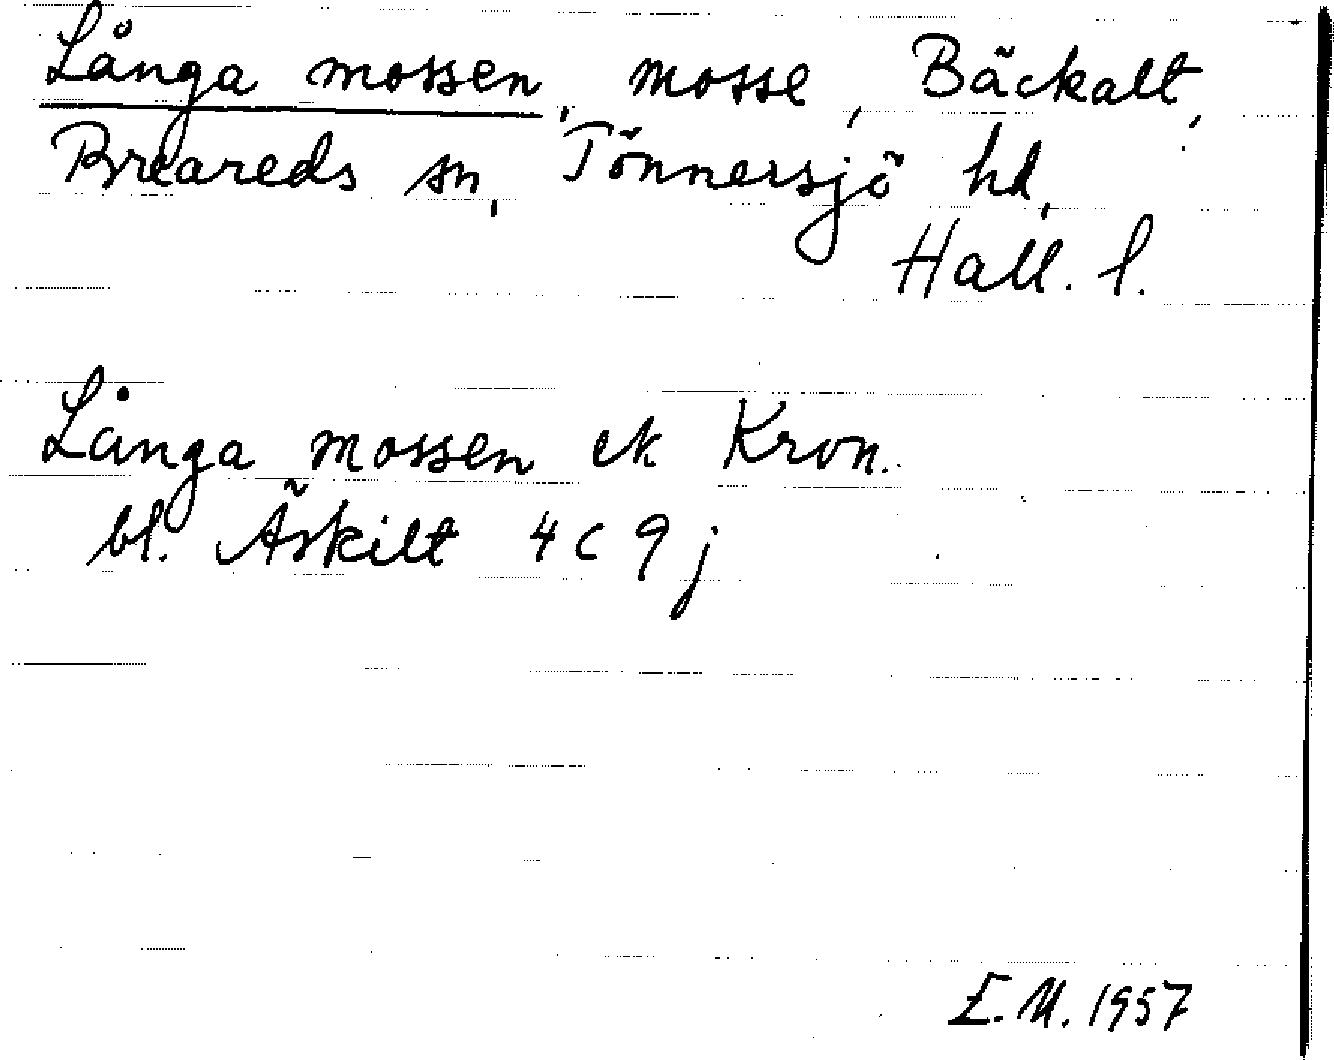 Långa mossen, mosse, Bäckalt,
Breareds sn, Tönnersjö hd,
Hall. l.
Långa mossen ek Kron.
bl. Äskilt 4 C 9 j
E.M. 1957